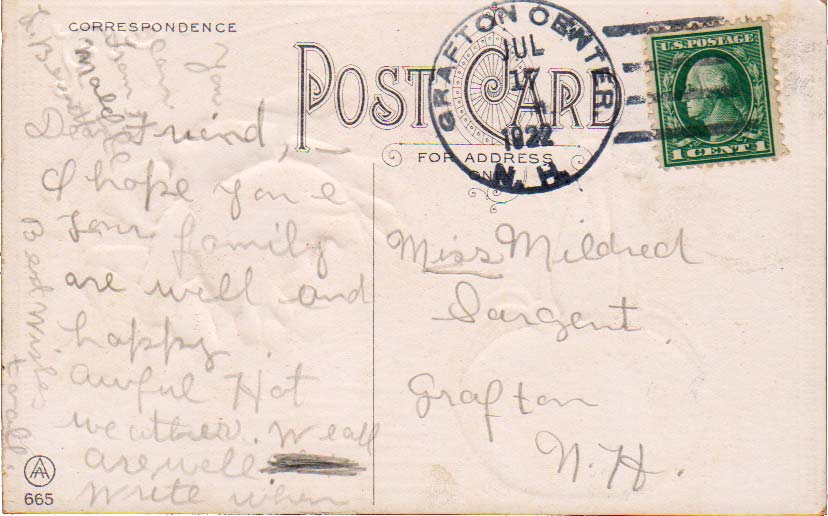 CORRESPONDENCE
POST CARD
FOR ADDRESS
ONLY
GRAFTON CENTER
JUL
17
1922
N. H.
U.S. POSTAGE
1 CENT 1
Dear Friend,
I hope you &
your family
are well and
happy.
awful Hot
weather. We all
are well
write when
you
can
from
L. Bean
Best Wishes
to all.
Miss Mildred
Sargent
Grafton
N. H.
AA
665